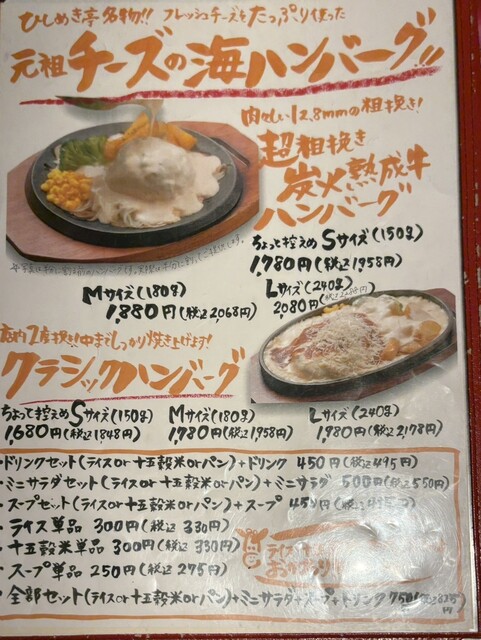 ひしめき亭名物!! フレッシュチーズをたっぷり使った
元祖チーズの海ハンバーグ!!
肉々しい12.8mmの粗挽き!
超粗挽き
炭火熟成牛
ハンバーグ
ちょっと控えめ Sサイズ(150g)
1,780円(税込1,958円)
Mサイズ(180g)
1,880円(税込2,068円)
Lサイズ(240g)
2,080円
店内2度挽き!中までしっかり焼き上げます!
クラシックハンバーグ
ちょっと控えめ Sサイズ(150g)
1,680円(税込1848円)
Mサイズ(180g)
1,780円(税込1,958円)
Lサイズ(240g)
1,980円(税込2,178円)
・ドリンクセット(ライスor十五穀米orパン)+ドリンク 450円(税込495円)
・ミニサラダセット(ライスor十五穀米orパン)+ミニサラダ 500円(税込550円)
・スープセット(ライスor十五穀米orパン)+スープ 450円(税込495円)
・ライス単品 300円(税込330円)
・十五穀米単品 300円(税込330円)
・スープ単品 250円(税込275円)
ライス
おかわり
・全部セット(ライスor十五穀米orパン)+ミニサラダ+スープ+ドリンク 750